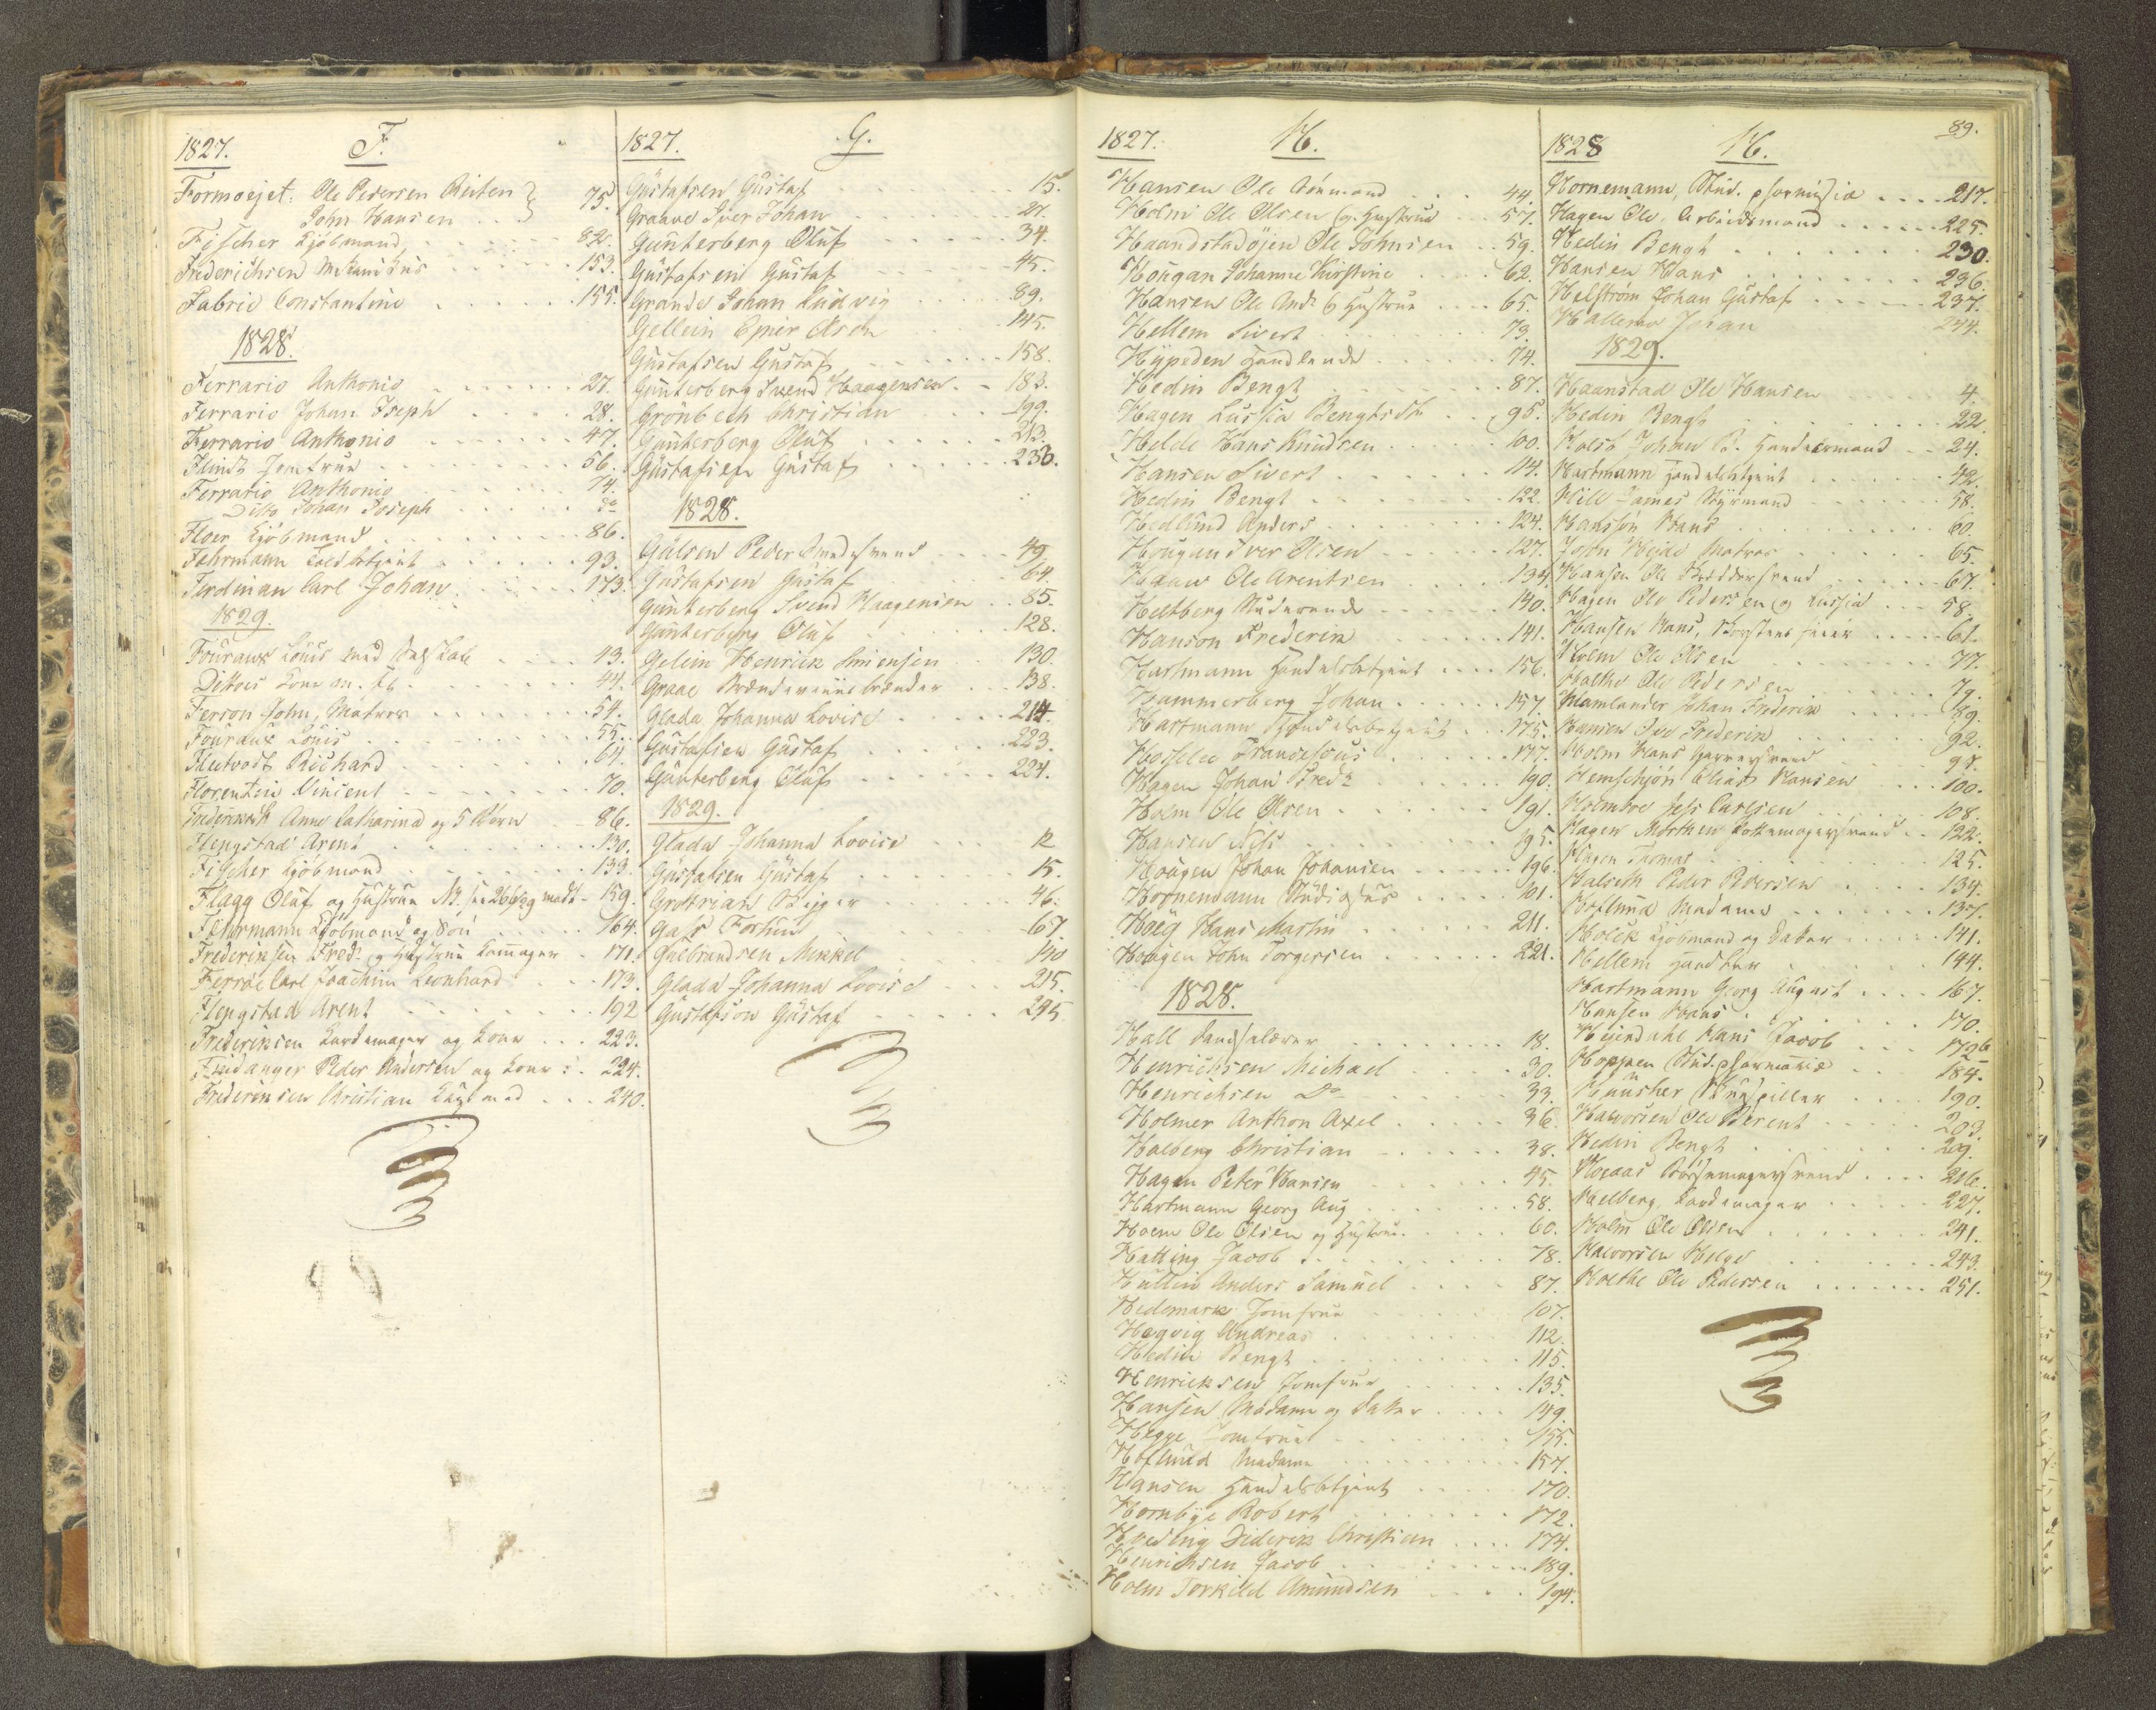 1827. F.
Formoejet: Ole Pedersen Reiten } 75.
John Hansen
Fischer Kjöbmand 82.
Frederichsen Mekanikus 153.
Fabrie Constantino 155.
1828.
Ferrario Anthonio 27.
Ferrario Johan Joseph 28.
Ferrario Anthonio 47.
Flindt Jomfrue 56.
Ferrario Anthonio 74.
Dito Johan Joseph do
Floer Kjöbmand 86.
Fehrmann 93.
Ferdinan Carl Johan 173.
1829.
Fouraux Louis med Selskab 43.
Dittoes Kone m. fl. 44.
Ferson John, Matros 54.
Fouraux Louis 55.
Fleetvodt Richard 64.
Florentin Vincent 70.
Anne Catharina og 5 Börn 86.
Flengstad Arent 130.
Fischer Kjöbmand 133.
Flagg Oluf og Hustrue 159.
Fehrmann Kjöbmand og Sön 164.
Frederiksen Fredr. og Hustrue 171.
Ferröe Carl Joachim Leonhard 173.
Flengstad Arent 192
Frederiksen Kardemager og Kone 223.
Findanger Peder Andersen og Kone 224.
Frederiksen Christian 240.
1827. G.
Gustafsen Gustaf 15.
Graave Iver Johan 27.
Gunterberg Oluf 34.
Gustafsen Gustaf 45.
Grande Johan Ludvig 89.
Gellein Olsen 145.
Gustafsen Gustaf 158.
Gunterberg Svend Haagensen 183.
Grönbech Christian 199.
Gunterberg Oluf 213.
Gustafsen Gustaf 236.
1828.
Gulsen Peder Smedesvend 49.
Gustafsen Gustaf 64.
Gunterberg Svend Haagensen 85.
Gunterberg Oluf 128.
Gelein Henrick 130.
Graae Brændeviinsbrænder 138.
Glada Johanna Lovise 214.
Gustafsen Gustaf 223.
Gunterberg Oluf 224.
1829.
Glada Johanna Lovise 12
Gustafsen Gustaf 15.
Grotrian 46.
Gass Fortun 67.
Gulbrandsen Mikkel 140
Glada Johanna Lovise 215.
Gustafson Gustaf 245
1827. H.
Hansen Ole Styrmand 44.
Holm Ole Olsen og Hustrue 57.
Haandstadöjen Ole Johnsen 59.
Hougan Johanne Kirstine 62.
Hansen Ole Andr. og Hustrue 65.
Hellem Sivert 73.
Hypeden Handlende 74.
Hedin Bengt 87.
Hagen Lussia Bengtsdtr. 95.
Helde Hans Knudsen 100.
Hansen Sivert 114.
Hedin Bengt 122.
Hedlund Anders 124.
Hougan Iver Olsen 127.
Haave Ole Arentsen 134.
Heltberg Studerende 140.
Hanson Frederik 141.
Hartmann Handelsbetjent 156.
Hammerberg Johan 157.
Hartmann Handelsbetjent 175.
Franciscus 177.
Hagen Johan Fredr. 190.
Holm Ole Olsen 191.
Hansen Nils 195.
Hougen Johan Johansen 196.
Hornemann 201.
Höeg Hans Martin 211.
Hougen John Torgersen 221.
1828.
Hall 18.
Henrichsen Michael 30.
Henrichsen Do 33.
Holmer Anthon Axel 36.
Halberg Christian 38.
Hagen Peter Hansen 45.
Hartmann Georg Aug 58.
Holm Ole Olsen og Hustrue 60.
Hatting Jacob 78.
Hullin Anders Samuel 87.
Hedemark Jomfrue 107.
Hegvig Andreas 112.
Hedin Bengt 115.
Henricksen Jomfrue 135.
Hansen Madame og Datter 149.
Hegge Jomfrue 155.
Hoflund Madame 157.
Hansen Handelsbetjent 170.
Hornbye Robert 172.
Diderik Christian 174.
Henrichsen Jacob 189.
Holm Torkild Amundsen 194.
89.
1828 H.
Hornemann, Stud. 217.
Hagen Ole, Arbeidsmand 225.
Hedin Bengt 230.
Hansen Hans 236.
Helström Johan Gustaf 237.
Hallemo Johan 244.
1829.
Haanstad Ole Hansen 4.
Hedin Bengt 22.
Holst Johan P. 24.
Hartmann Handelsbetjent 42.
Hill James Styrmand 58.
Hanssön Hans 60.
John Matros 65.
Hansen Ole Skreddersvend 67.
Hagen Ole Pedersen og Lussia 58.
Hansen Hans, 61.
Holm Ole Olsen 77.
Holthe Ole Pedersen 79.
Hamlander Johan Frederik 89.
Hansen Frederik 92.
Holm Hans Garversvend 97.
Hemschjön Elias Hansen 100.
Holmboe Jess Carlsen 108.
Hagen Morthen Pottemagersvend 122.
Hagen Thomas 125.
Halseth Peder Pedersen 134.
Hoflund Madame 137.
Holck Kjöbmand og Datter 141.
Hellem Handlende 144.
Hartmann Georg August 167.
Hansen Hans 170.
Hejerdahl Hans Jacob 172b
Hoppen Stud. 184.
Skuespiller 190.
Halvorsen Ole Berent 203.
Hedin Bengt 209.
Hocaas Bössemagersvend 216.
Helberg, Kardemager 227.
Holm Ole Olsen 241.
Halvorsen Helge 243.
Holthe Ole Pedersen 251.